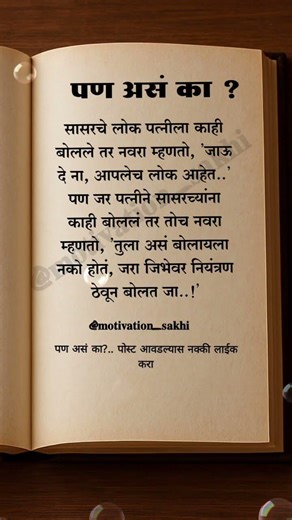 पण असं का ?
सासरचे लोक पत्नीला काही
बोलले तर नवरा म्हणतो, 'जाऊ
दे ना, आपलेच लोक आहेत..'
पण जर पत्नीने सासरच्यांना
काही बोललं तर तोच नवरा
म्हणतो, 'तुला असं बोलायला
नको होतं, जरा जिभेवर नियंत्रण
ठेवून बोलत जा..!'
@motivation_sakhi
@motivation_sakhi
पण असं का?.. पोस्ट आवडल्यास नक्की लाईक
करा